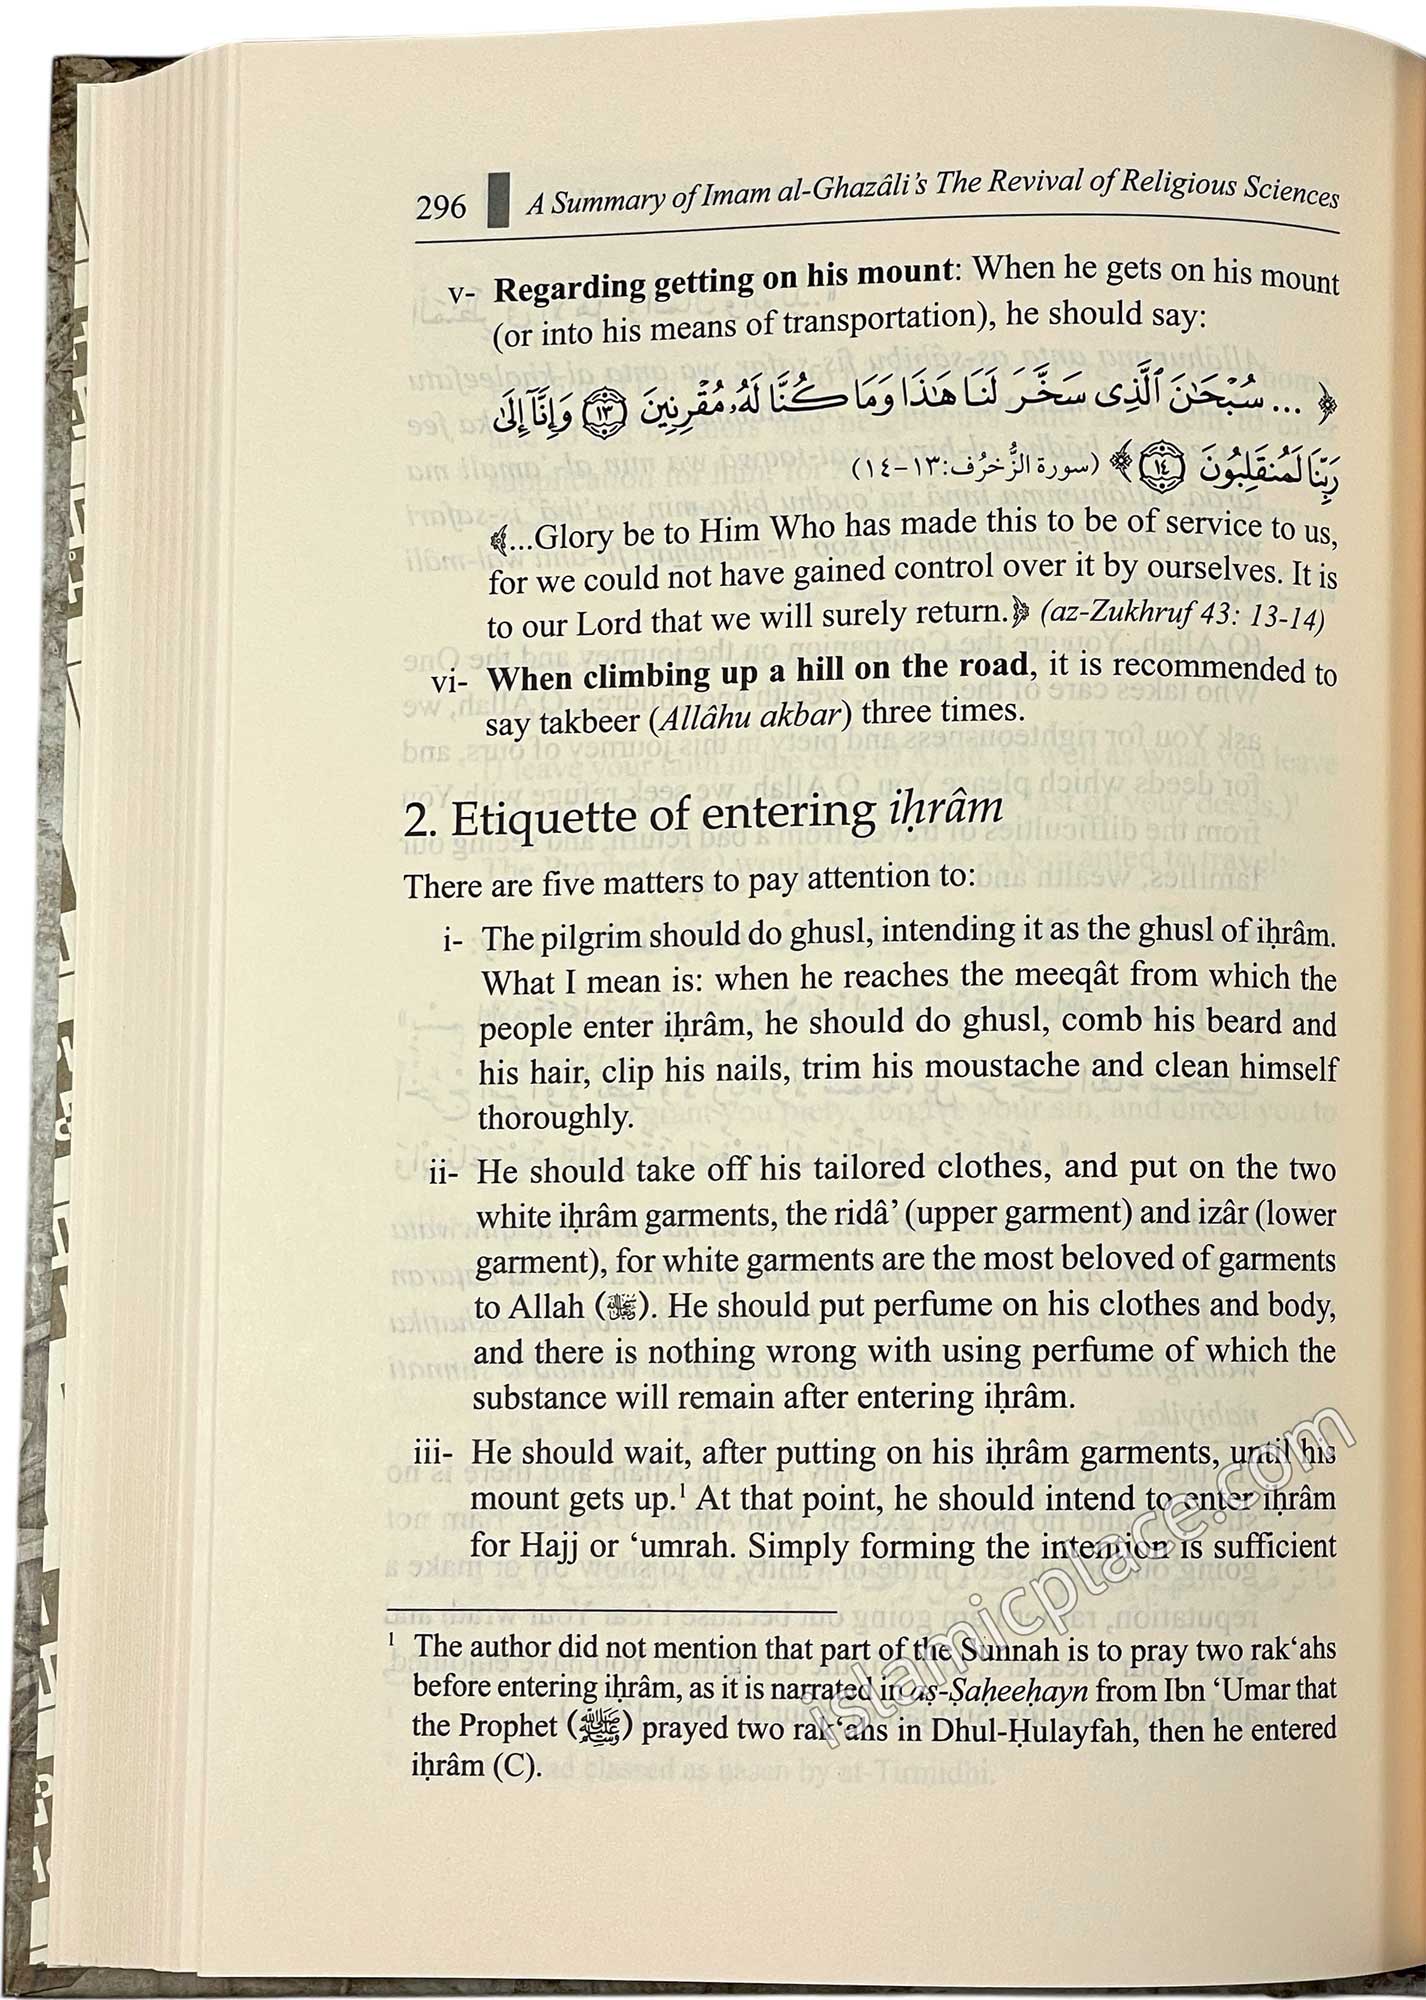 296 A Summary of Imam al-Ghazâli's The Revival of Religious Sciences
v- Regarding getting on his mount: When he gets on his mount
(or into his means of transportation), he should say:
﴿ ... سُبْحَٰنَ ٱلَّذِى سَخَّرَ لَنَا هَٰذَا وَمَا كُنَّا لَهُۥ مُقْرِنِينَ ۝١٣ وَإِنَّآ إِلَىٰ
رَبِّنَا لَمُنقَلِبُونَ ۝١٤ ﴾ (سورة الزُّخرُف: ١٣-١٤)
﴾...Glory be to Him Who has made this to be of service to us,
for we could not have gained control over it by ourselves. It is
to our Lord that we will surely return.﴿ (az-Zukhruf 43: 13-14)
vi- When climbing up a hill on the road, it is recommended to
say takbeer (Allâhu akbar) three times.
2. Etiquette of entering iḥrâm
There are five matters to pay attention to:
i- The pilgrim should do ghusl, intending it as the ghusl of iḥrâm.
What I mean is: when he reaches the meeqât from which the
people enter iḥrâm, he should do ghusl, comb his beard and
his hair, clip his nails, trim his moustache and clean himself
thoroughly.
ii- He should take off his tailored clothes, and put on the two
white iḥrâm garments, the ridâ’ (upper garment) and izâr (lower
garment), for white garments are the most beloved of garments
to Allah (). He should put perfume on his clothes and body,
and there is nothing wrong with using perfume of which the
substance will remain after entering iḥrâm.
iii- He should wait, after putting on his iḥrâm garments, until his
mount gets up.¹ At that point, he should intend to enter iḥrâm
for Hajj or ‘umrah. Simply forming the intention is sufficient
¹ The author did not mention that part of the Sunnah is to pray two rak‘ahs
before entering iḥrâm, as it is narrated in aṣ-Ṣaḥeeḥayn from Ibn ‘Umar that
the Prophet (ﷺ) prayed two rak‘ahs in Dhul-Ḥulayfah, then he entered
iḥrâm (C).
islamicplace.com